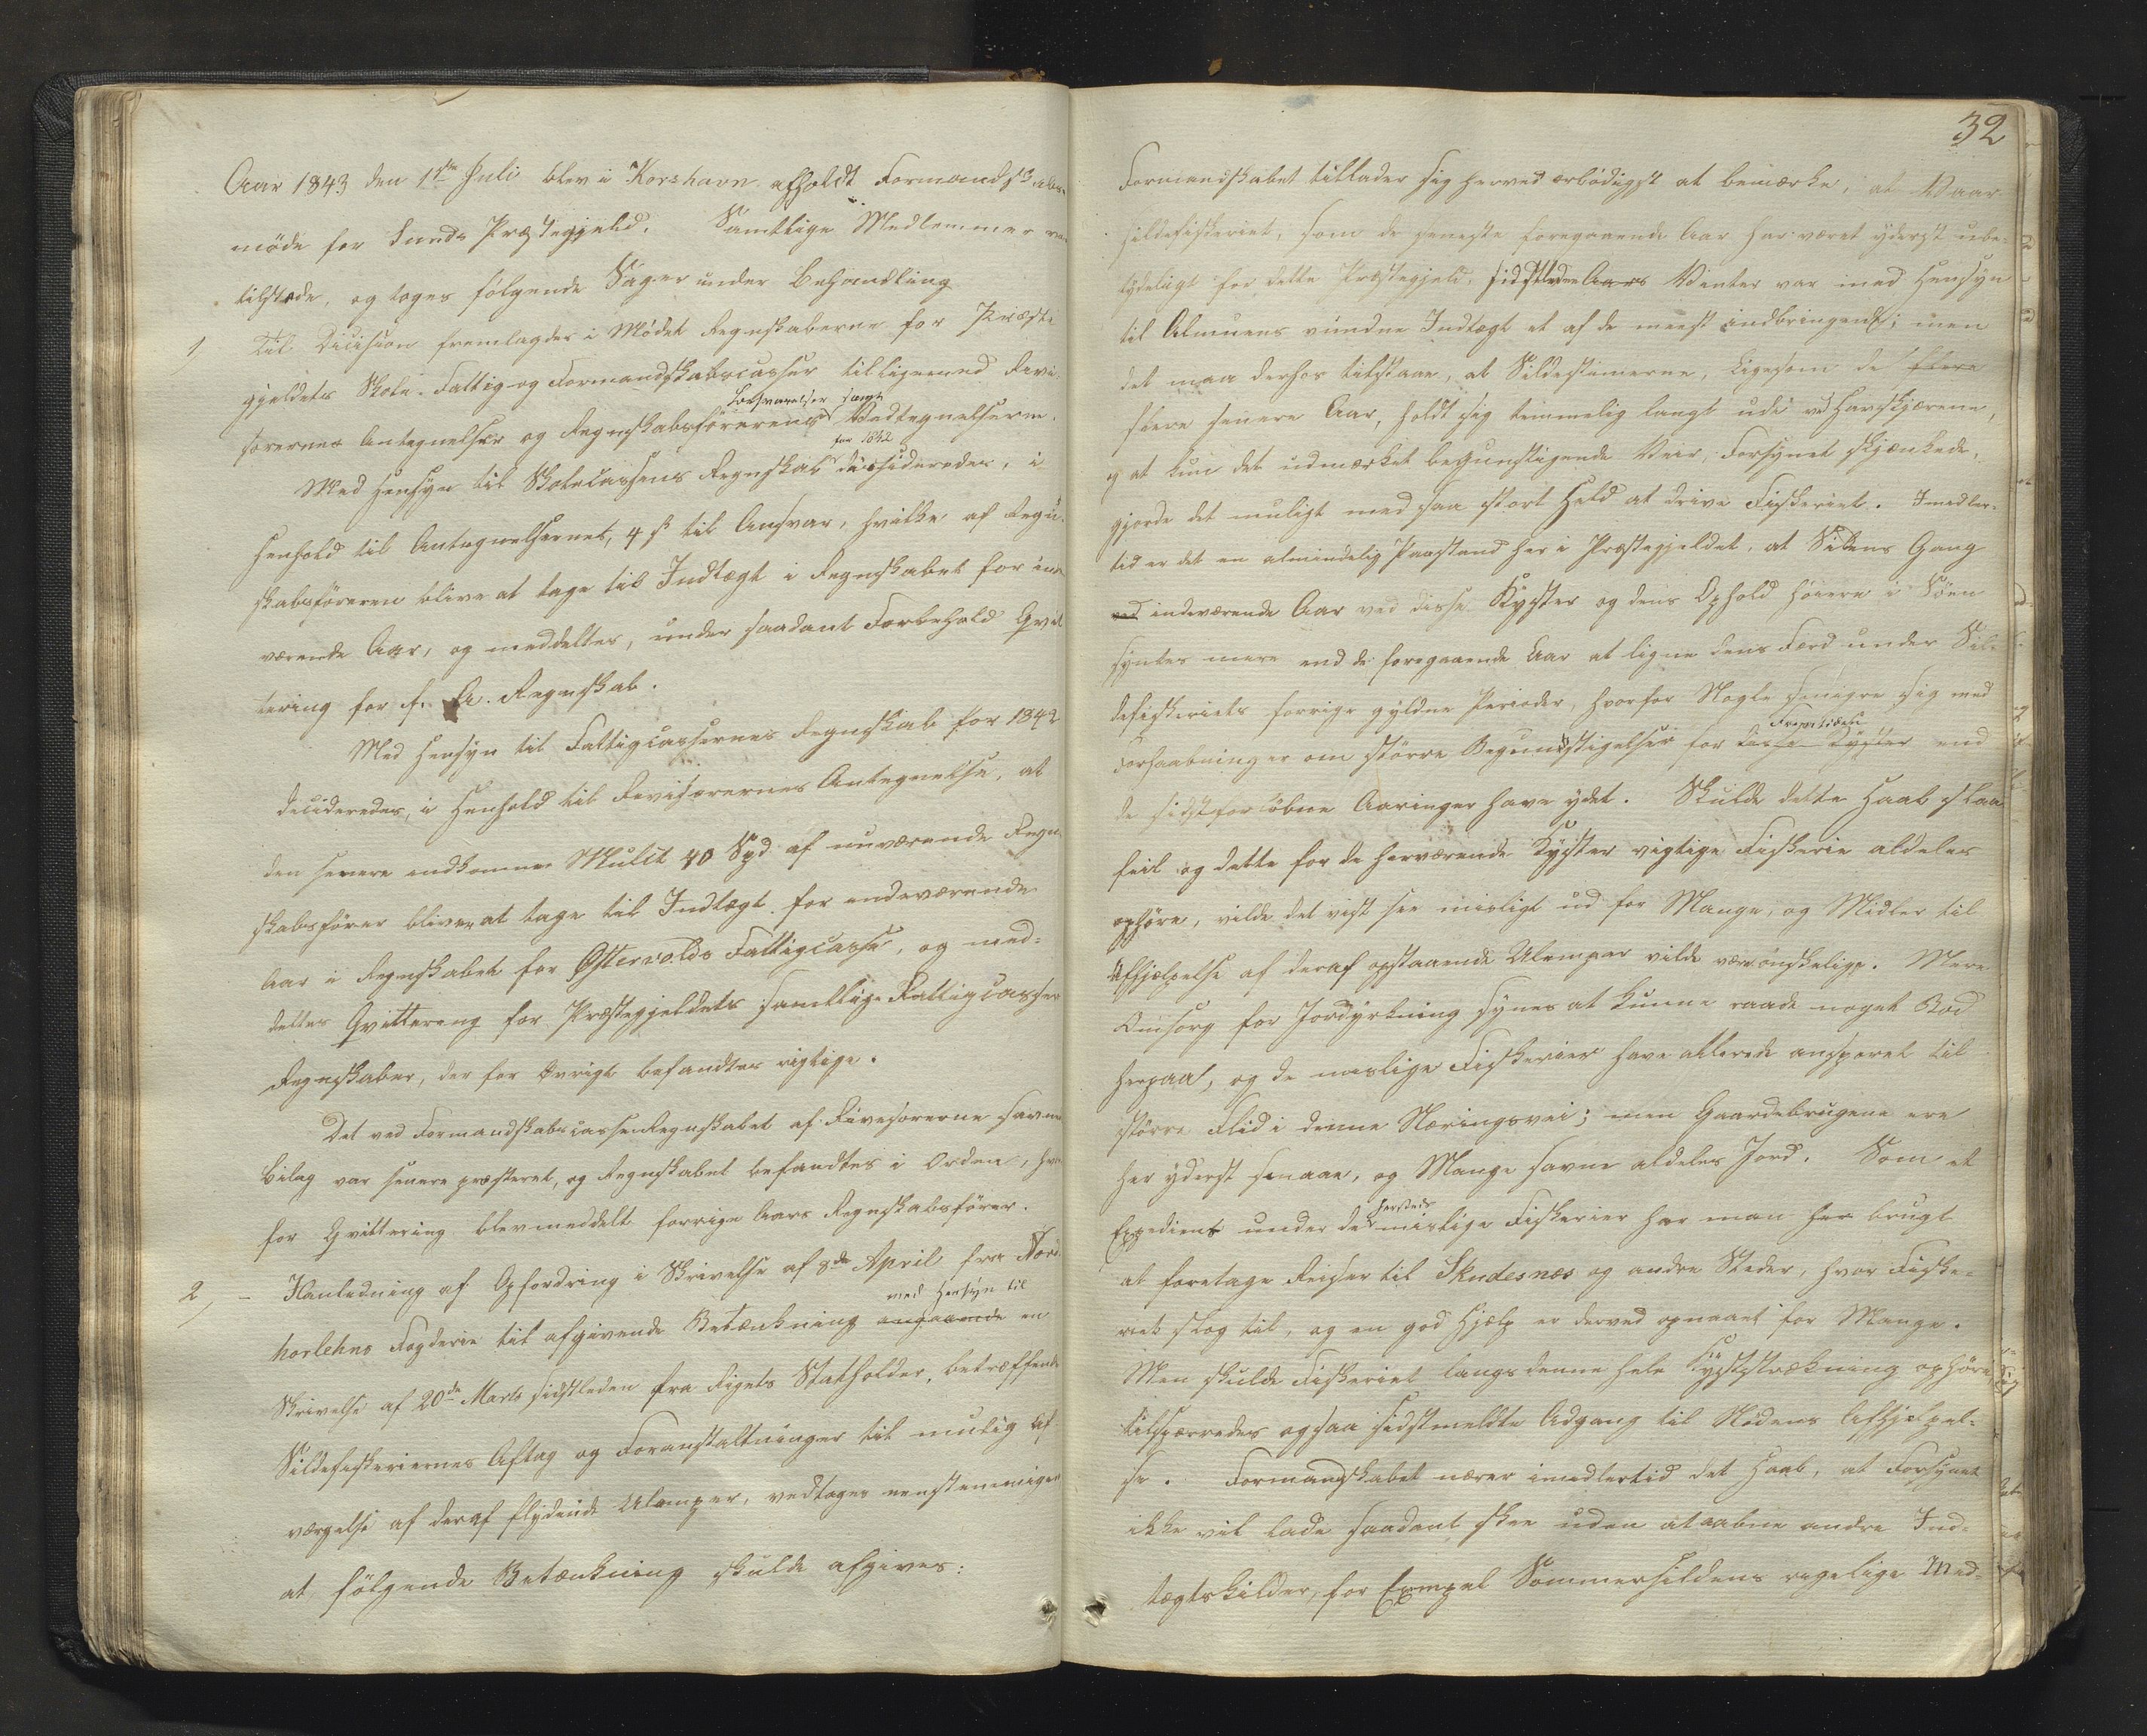 Aar 1843 den 1ste Juli blev i Korshavn afholdt Formandskabs-
möde for Sunds Præstegjeld. Samtlige Medlemmer var
tilstede, og toges følgende Sager under Behandling
1 Til Decision fremlagdes i Mödet Regnskaberne for Præste
gjeldets Skole- Fattig- og Formandskabscasser tilligemed Revi-
Besvarelser samt
sorernes Antegnelser og Regnskabsförerens Vedtegnelserne.
for 1842
Med Hensyn til Skolecassens Regnskab decideredes, i
Henhold til Antegnelsernes, 4 ß til Ansvar, hvilke af Regn-
skabsföreren blive at tage til Indtægt i Regnskabet for inde
værende Aar, og meddeltes, under saadant Forbehold Qvit
tering for f. A. Regnskab.
Med Hensyn til Fattigcassernes Regnskab for 1842
decideredes, i Henhold til Revisorernes Antegnelse, at
den senere indkomne Mulct 40 Spd af nuværende Regn-
skabsförer bliver at tage til Indtægt for indeværende
Aar i Regnskabet for Ostervolds Fattigcasse, og med-
deltes Qvittering for Præstegjeldets samtlige Fattigcassers
Regnskaber, der for Övrigt befandtes rigtige.
Det ved FormandskabscassenRegnskabet af Revisorerne savnede
Bilag var senere præsteret, og Regnskabet befandtes i Orden, hvor
for Qvittering blev meddelt forrige Aars Regnskabsförer.
2, - I Anledning af Opfordring i Skrivelse af 8de April fra Nord
med Hensyn til
horlehns Fogderie til afgivende Betænkning angaaende en
Skrivelse af 20de Marts sidstleden fra Rigets Statholder, betræffende
Sildefiskeriernes Aftag og Foranstaltninger til mulig Af
værgelse af deraf flydende Ulemper, vedtoges eenstemmigen
at følgende Betænkning skulde afgives:
32
Formandskabet tillader sig herved ærbödigst at bemærke, at Vaar
sildefiskeriet, som de seneste foregaaende Aar har været yderst ube-
tydeligt for dette Præstegjeld, sidstleden Aars Vinter var med Hensyn
til Almuens vundne Indtægt et af de meest indbringende; men
det maa derhos tilstaaes, at Sildestimerne, ligesom de flere
flere senere Aar, holdt sig temmelig langt ude ved Havskjærene,
og at kun det udmærket begunstigende Veir, Forsynet skjænkede,
gjorde det muligt med saa stort Held at drive Fiskeriet. Imidler-
tid er det en almindelig Paastand her i Præstegjeldet, at Sildens Gang
ved indeværende Aar ved disse Kyster og dens Ophold höiere i Söen
syntes mere end de foregaaende Aar at ligne dens Færd under Sil-
defiskeriets forrige gyldne Perioder, hvorfor Nogle smigre sig med
Fremtiden
Forhaabninger om större Begunstigelser for disse Kyster end
de sidstforløbne Aaringer have ydet. Skulde dette Haab slaa
feil og dette for de herværende Kyster vigtige Fiskerie aldeles
ophöre, vilde det vist see misligt ud for Mange, og Midler til
Afhjælpelse af deraf opstaaende Ulemper vilde være önskelige. Mere
Omsorg for Jorddyrkning synes at kunne raade noget Bod
herpaa, og de mislige Fiskerier have allerede ansporet til
större Flid i denne Næringsvei; men Gaardebrugene ere
her yderst smaae, og Mange savne aldeles Jord. Som et
hersteds
Expediens under de mislige Fiskerier har man her brugt
at foretage Reiser til Skudesnæs og andre Steder, hvor Fiske-
riet slog til, og en god Hjelp er derved opnaaet for Mange.
Men skulde Fiskeriet langs denne hele Kyststrækning ophöre,
tilspærredes ogsaa sidstmeldte Adgang til Nödens Afhjelpel-
se. Formandskabet nærer imidlertid det Haab, at Forsynet
ikke vil lade saadant skee uden at aabne andre Ind-
tægtskilder, for Exempel Sommersildens rigelige Ind-